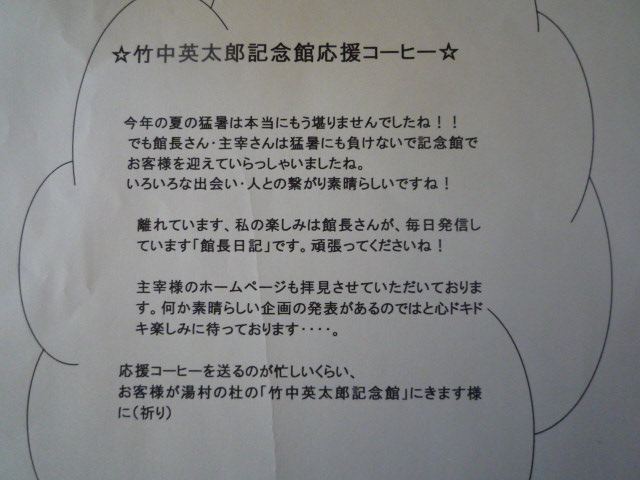 ☆竹中英太郎記念館応援コーヒー☆
今年の夏の猛暑は本当にもう堪りませんでしたね！！
でも館長さん・主宰さんは猛暑にも負けないで記念館で
お客様を迎えていらっしゃいましたね。
いろいろな出会い・人との繋がり素晴らしいですね！
離れています、私の楽しみは館長さんが、毎日発信し
ています「館長日記」です。頑張ってくださいね！
主宰様のホームページも拝見させていただいておりま
す。何か素晴らしい企画の発表があるのではと心ドキド
キ楽しみに待っております・・・・。
応援コーヒーを送るのが忙しいくらい、
お客様が湯村の杜の「竹中英太郎記念館」にきます様
に（祈り）